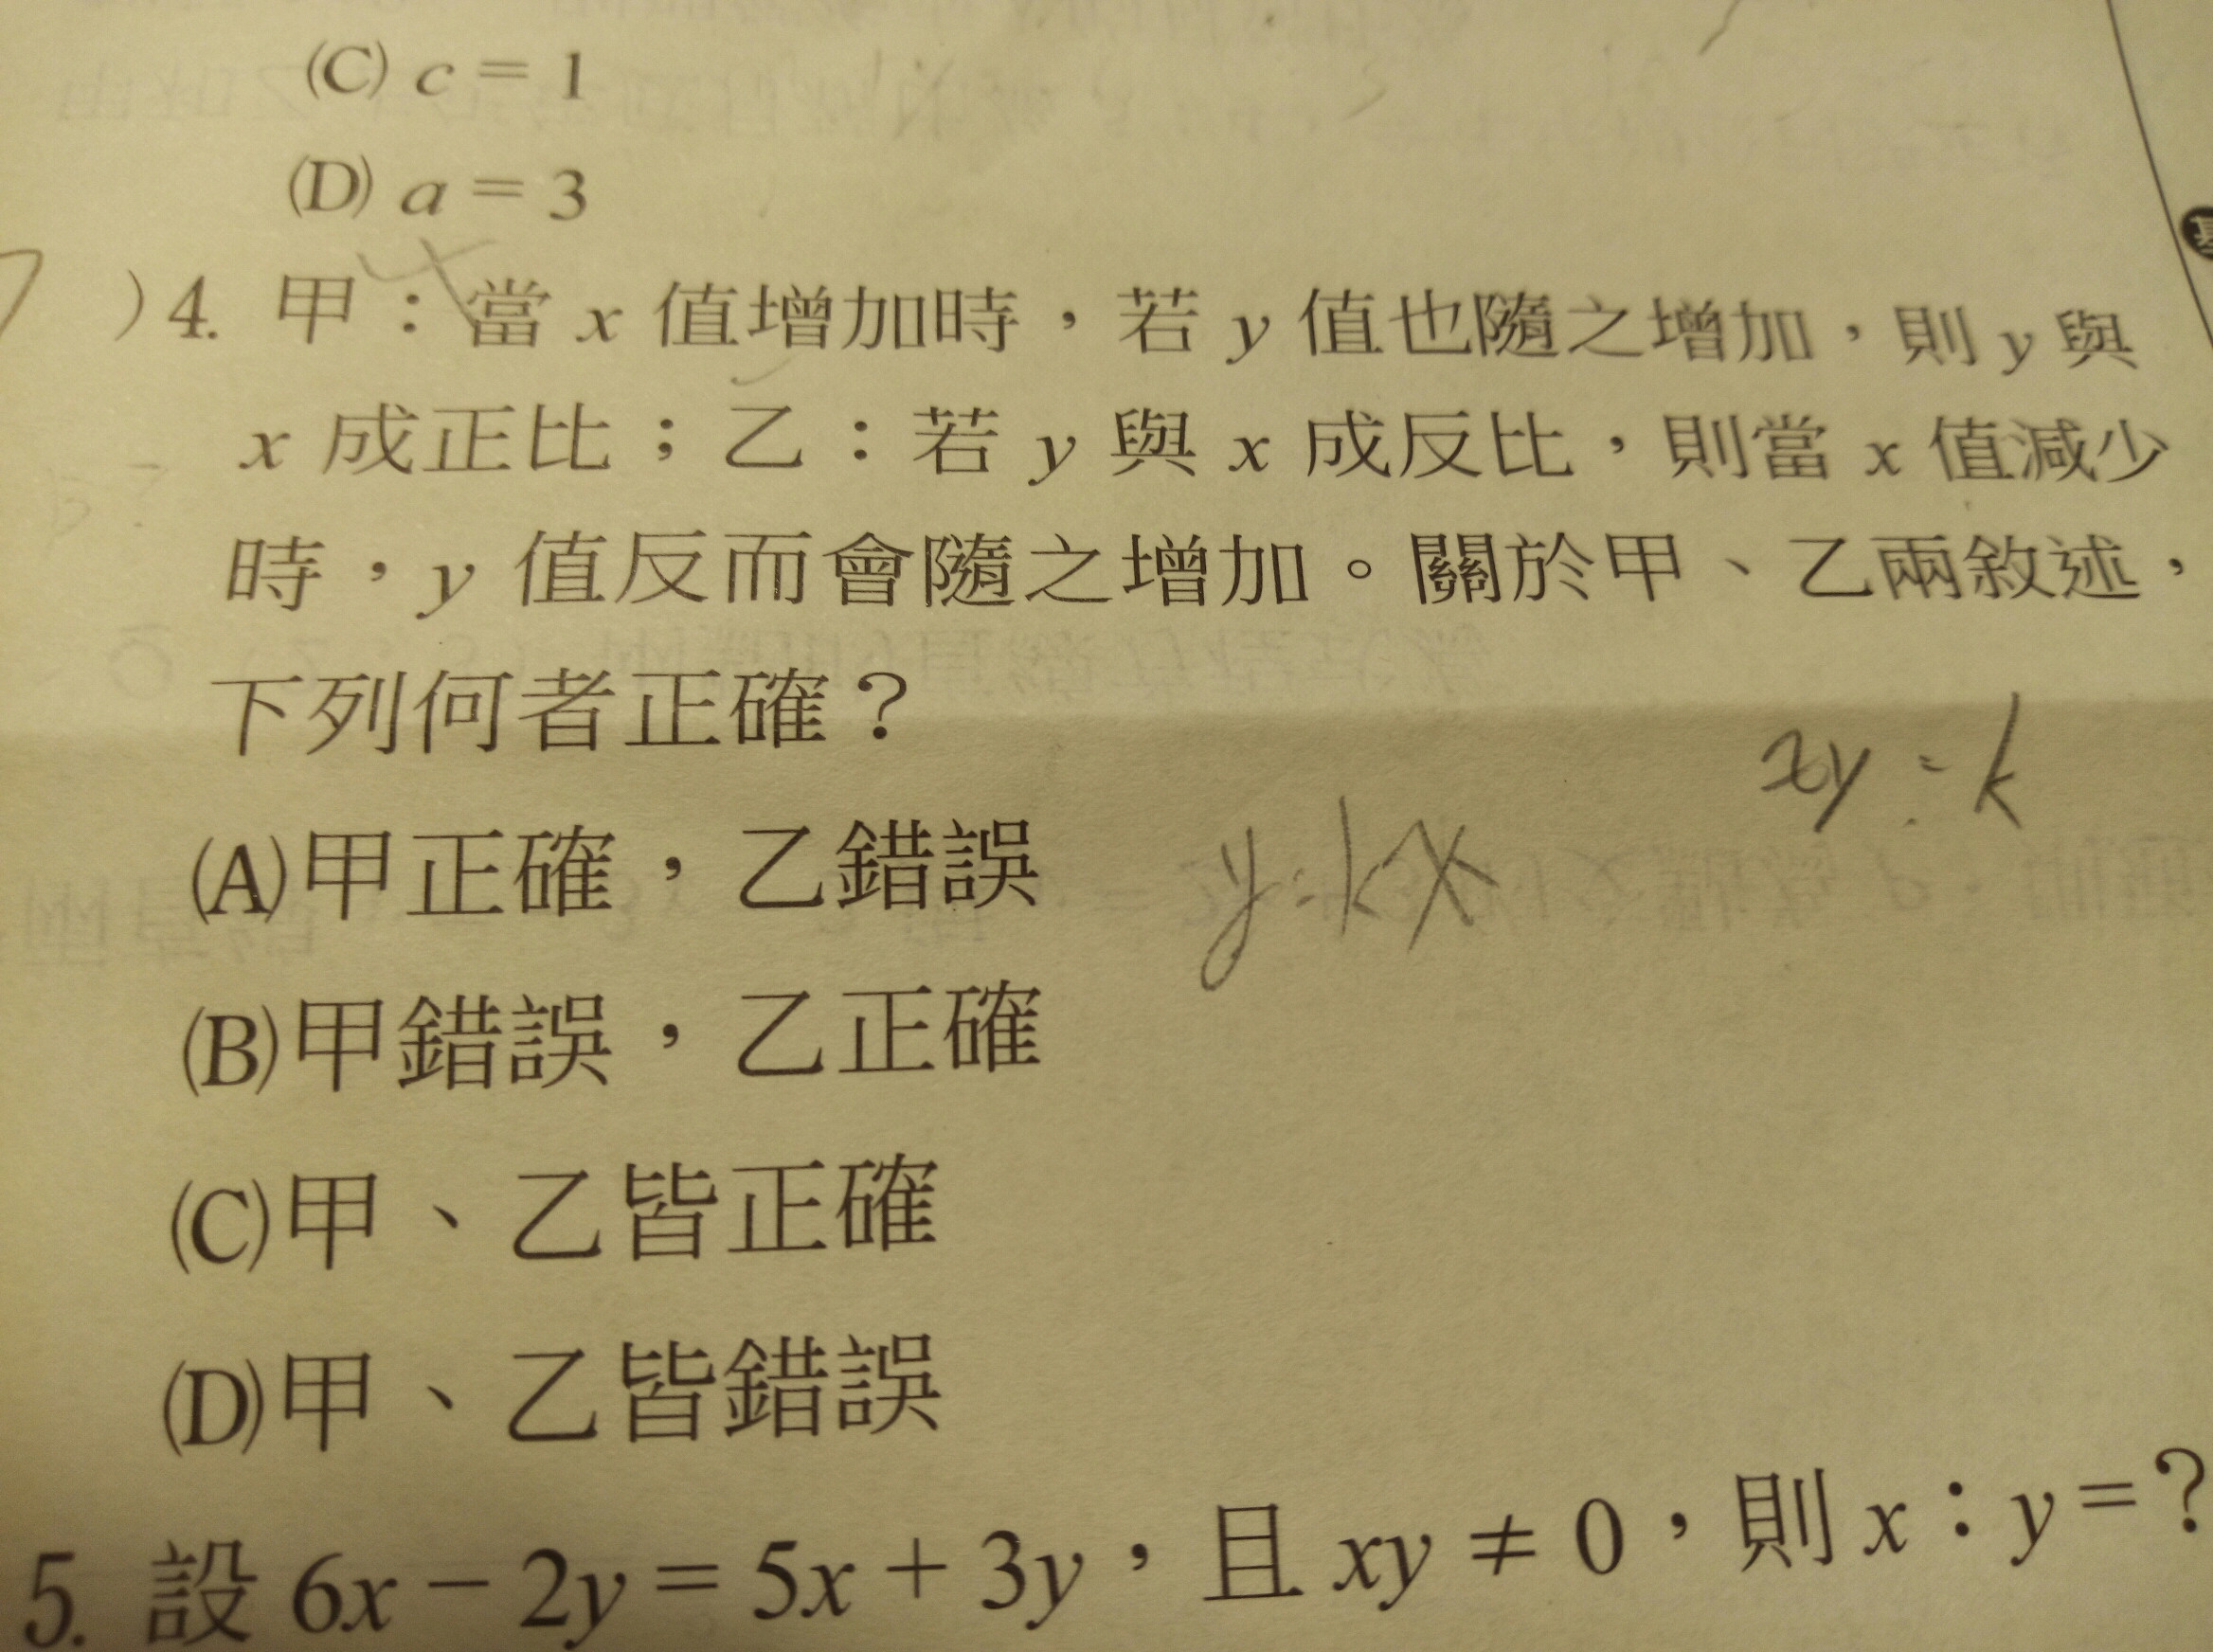 (C) c = 1
(D) a = 3
)4. 甲：當 x 值增加時，若 y 值也隨之增加，則 y 與
x 成正比；乙：若 y 與 x 成反比，則當 x 值減少
時，y 值反而會隨之增加。關於甲、乙兩敘述，
下列何者正確？
xy = k
(A)甲正確，乙錯誤
y = kx
(B)甲錯誤，乙正確
(C)甲、乙皆正確
(D)甲、乙皆錯誤
5. 設 6x − 2y = 5x + 3y，且 xy ≠ 0，則 x：y =？